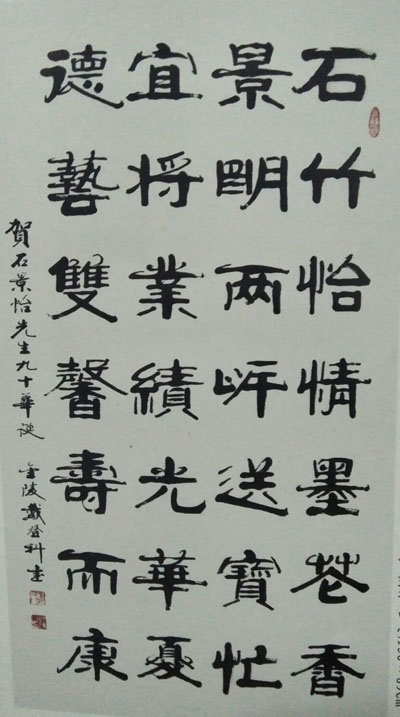 石竹怡情墨花香
景明两岸送寶忙
宜将業績光華夏
德藝雙馨壽而康
賀石景怡先生九十華誕 金陵戴登科書